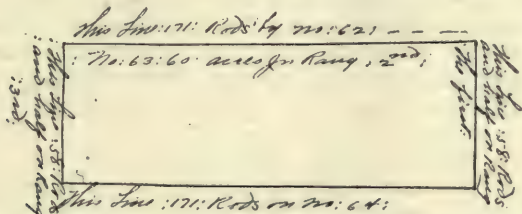 this Line :171: Rods by no: 62:
: No: 63: 60: acres In Rang, 2nd;
this Line :58: Rods
and half on Rang
the first:
this Line :58: Rods
and half on Rang
:3rd:
this Line :171: Rods on no: 64: